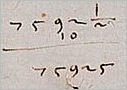 7592 1/2
10
75925